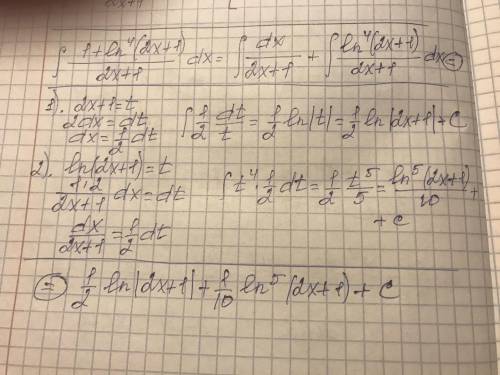 ∫ (1+ln⁴(2x+1))/(2x+1) dx = ∫ dx/(2x+1) + ∫ ln⁴(2x+1)/(2x+1) dx =
1). 2x+1=t
2dx=dt
dx=1/2 dt
∫ 1/2 dt/t = 1/2 ln|t| = 1/2 ln|2x+1| + C
2). ln(2x+1)=t
1·2/(2x+1) dx = dt
dx/(2x+1) = 1/2 dt
∫ t⁴ · 1/2 dt = 1/2 t⁵/5 = ln⁵(2x+1)/10 +
+ C
= 1/2 ln|2x+1| + 1/10 ln⁵(2x+1) + C